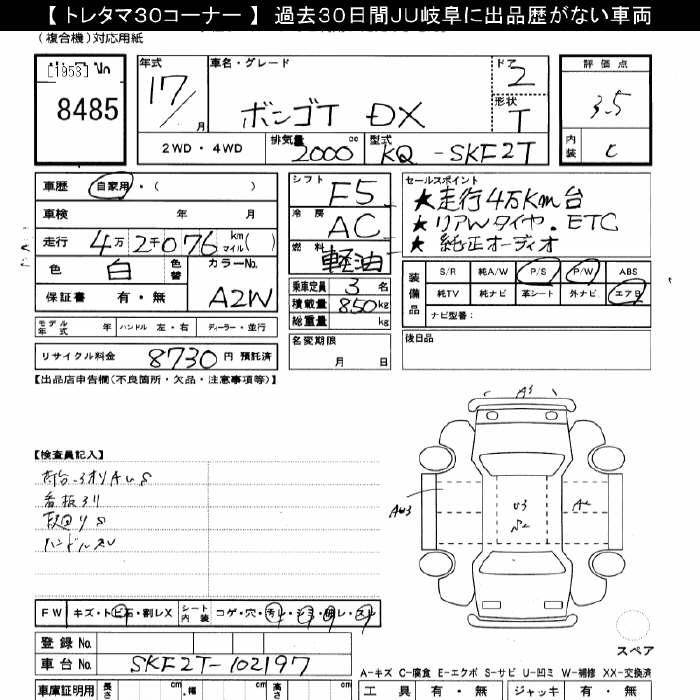 【 トレタマ３０コーナー 】 過去３０日間ＪＵ岐阜に出品歴がない車両
（複合機）対応用紙
[1953] No
8485
年式 17／ 月
車名・グレード
ボンゴT DX
ドア 2
形状 T
評価点
3.5
内装 C
2WD・4WD
排気量 2000 cc
型式 KQ -SKF2T
車歴 自家用・（ ）
車検 年 月
走行 4万2千076 km マイル( )
色 白 色替
カラーNo. A2W
保証書 有・無
モデル年式 年 ハンドル 左・右 ディーラー・並行
リサイクル料金 8730 円 預託済
シフト F5
冷房 AC
燃料 軽油
乗車定員 3 名
積載量 850 kg
総重量 kg
名変期限 月 日
セールスポイント
★走行4万Km台
★リアWタイヤ. ETC
★純正オーディオ
装備品
S/R 純A/W P/S P/W ABS
純TV 純ナビ 革シート 外ナビ エアB
ナビ型番：
後日品
【出品店申告欄（不良箇所・欠品・注意事項等）】
【検査員記入】
看板ヌリ
FW キズ・トビ石・割レX シート内装 コゲ・穴・汚レ・シミ・破レ・スレ
登録 No.
車台 No. SKF2T-102197
車庫証明用 長さ cm 幅 cm 高さ cm
スペア
A-キズ C-腐食 E-エクボ S-サビ U-凹ミ W-補修 XX-交換済
工具 有・無 ジャッキ 有・無